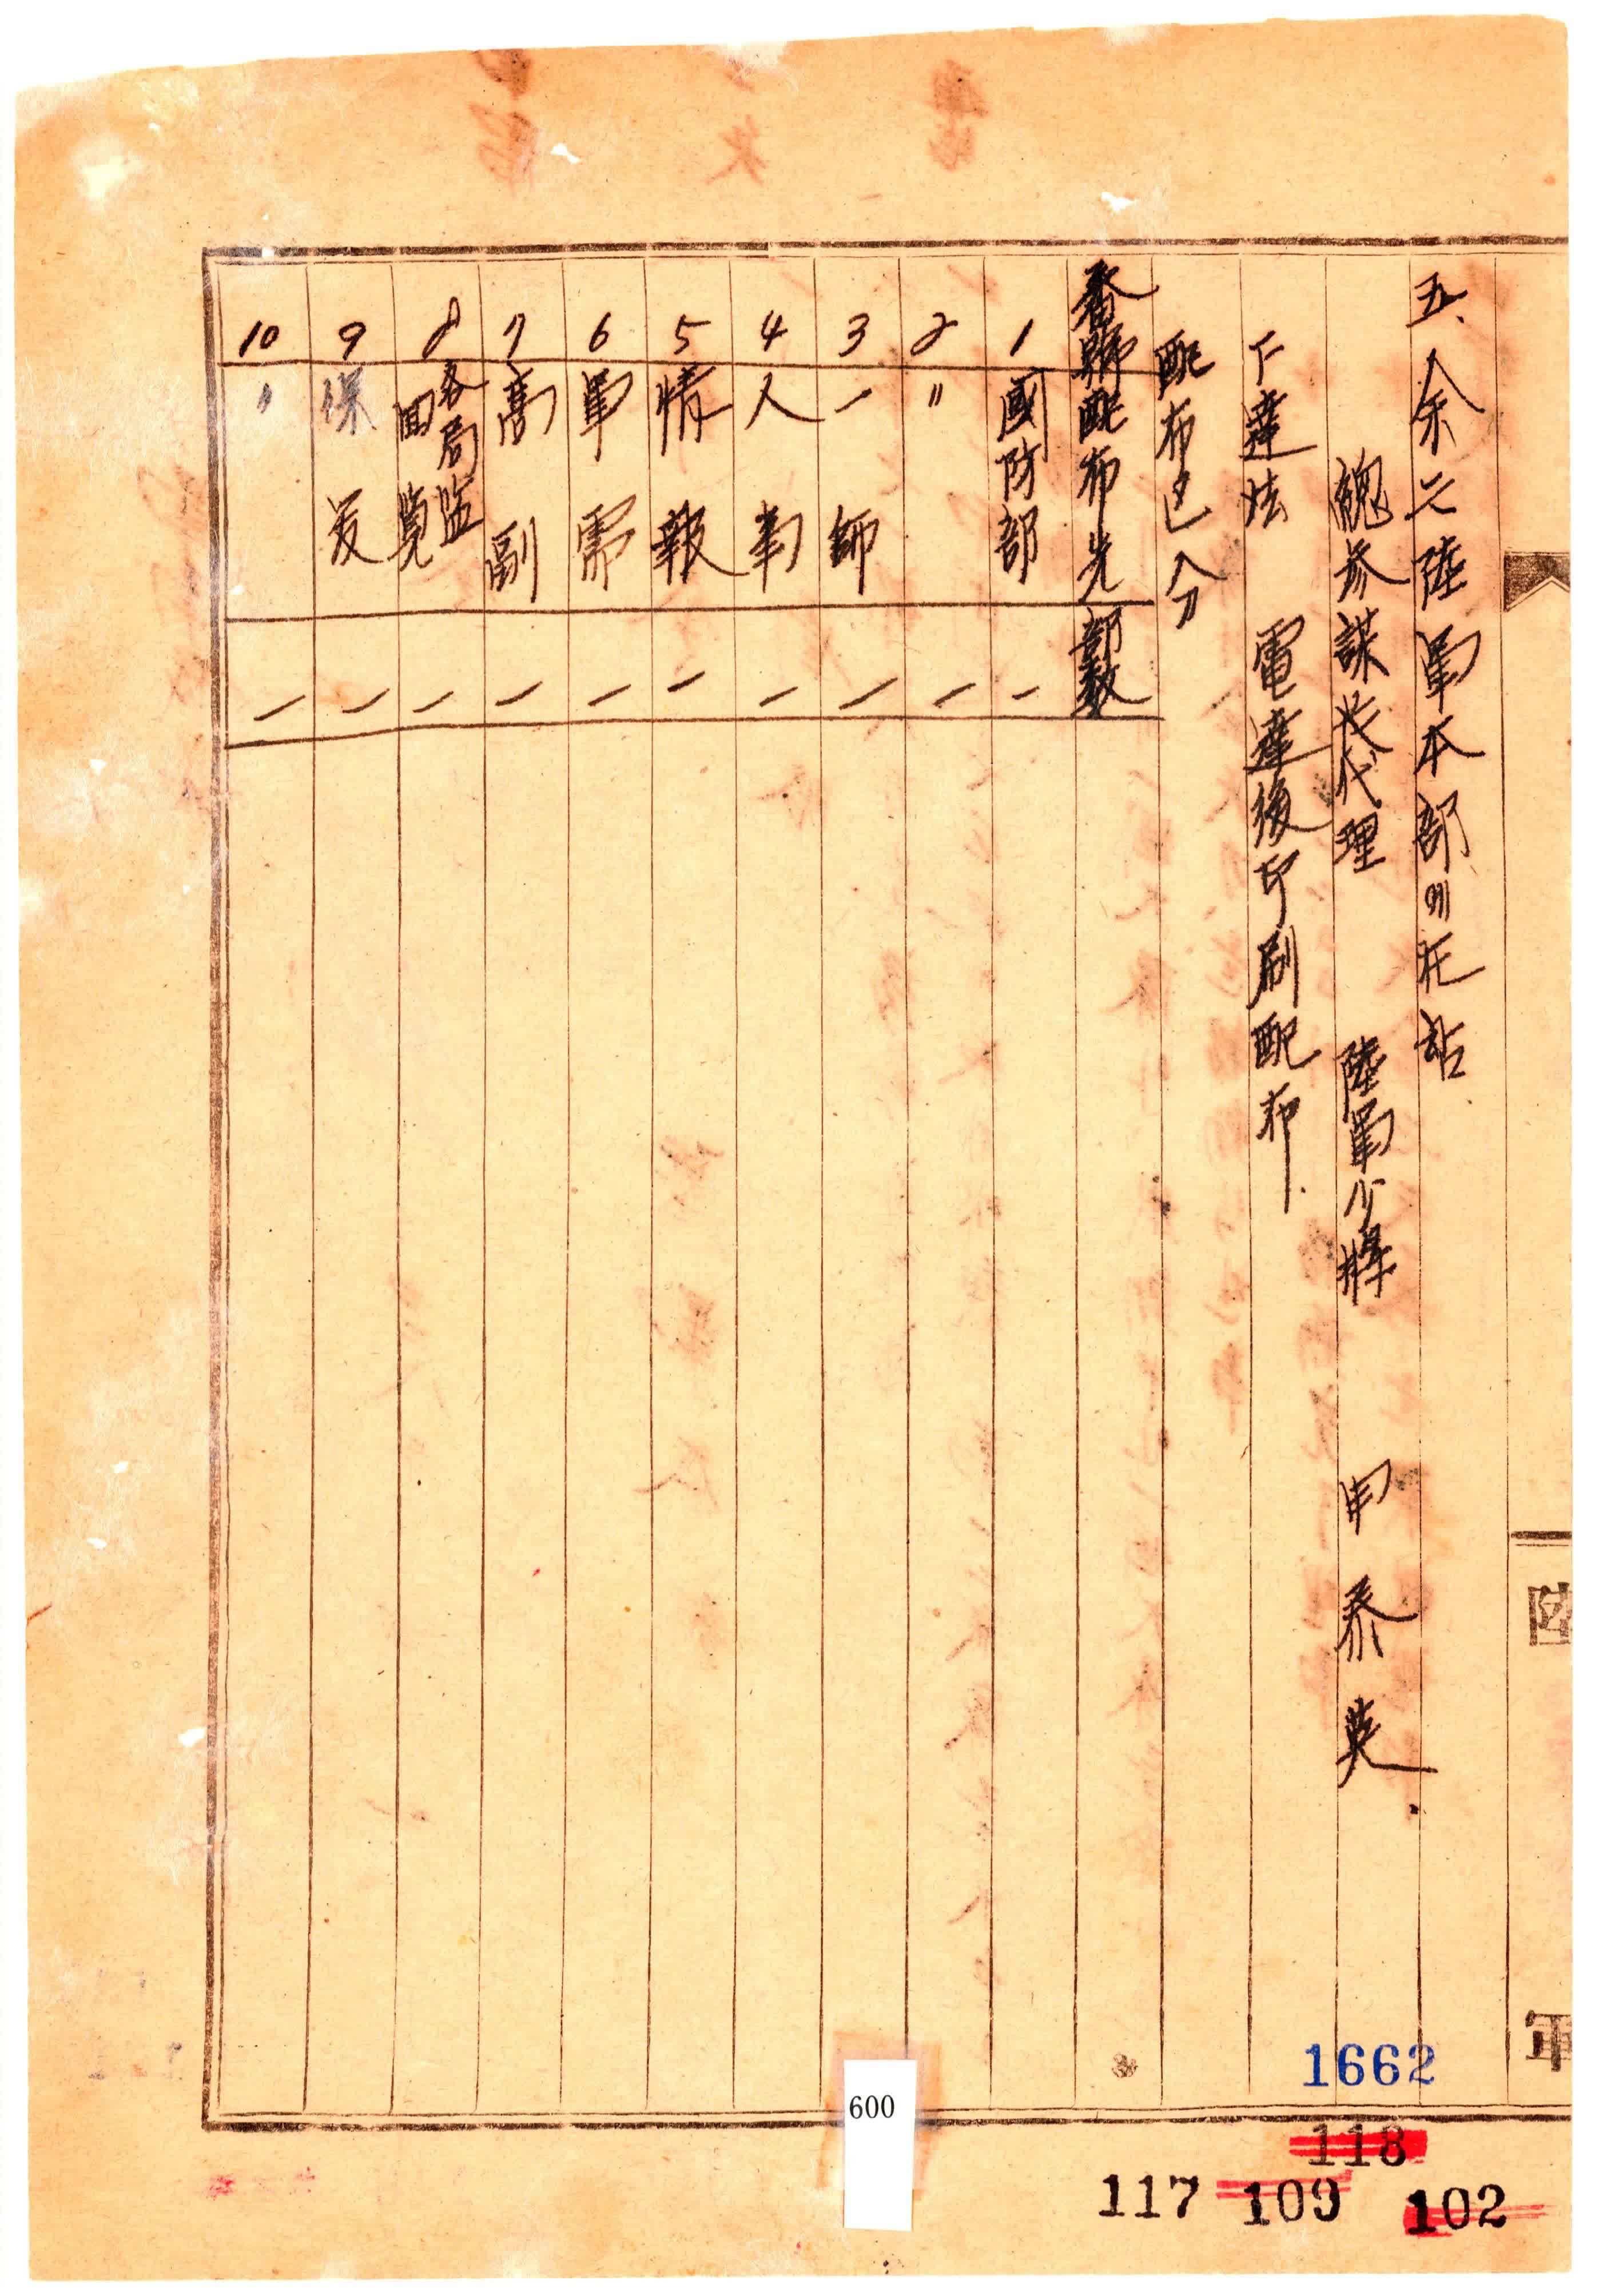 五、余는 陸軍本部에 在함
總參謀長代理 陸軍少將 申泰英
下達法 電達後印刷配布
配布区分
番號 配布先 部数
1 國防部 一
2 〃 一
3 一師 一
4 人事 一
5 情報 一
6 軍需 一
7 高副 一
8 各局監回覧 一
9 保友 一
10 〃 一
陸
軍
1662
600
118
117 109 102